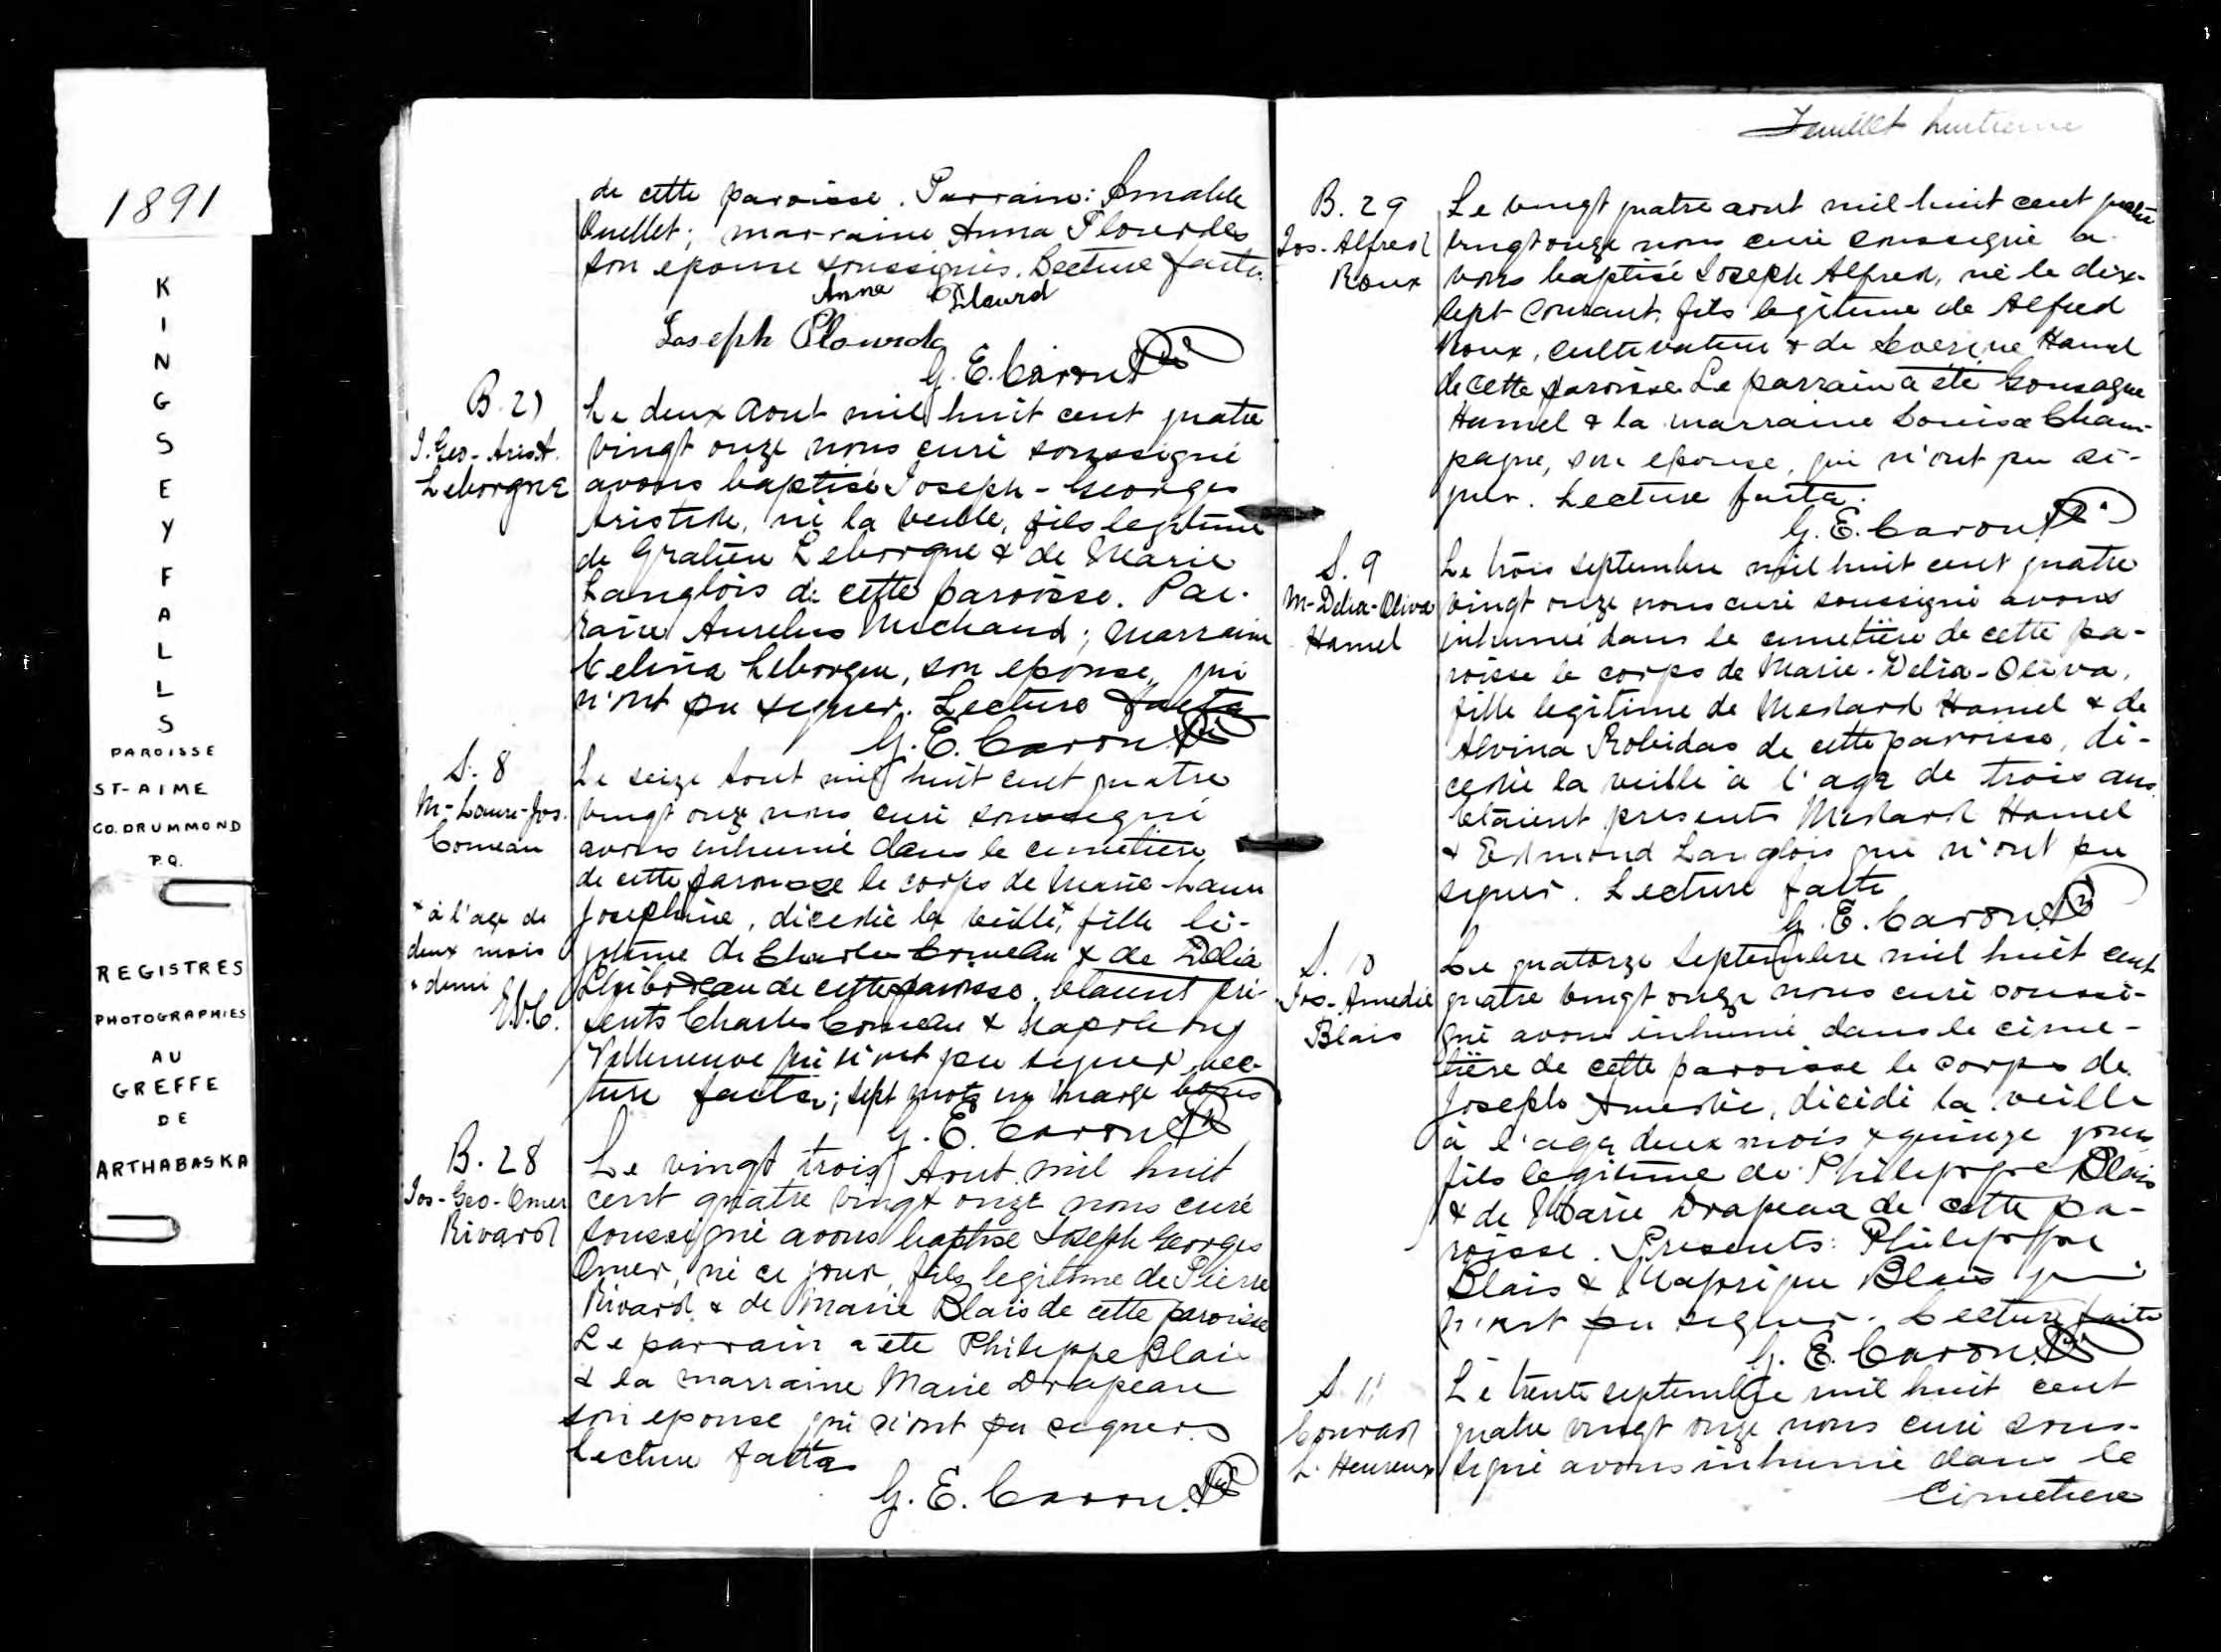 1891
K
I
N
G
S
E
Y
F
A
L
L
S
PAROISSE
ST-AIME
CO. DRUMMOND
P.Q.
REGISTRES
PHOTOGRAPHIES
AU
GREFFE
DE
ARTHABASKA
de cette paroisse. Parrain: Amable
Ouellet; marraine Anna Plourdes
son epouse soussignés. Lecture faite.
Anna Plourd
Joseph Plourde
G. E. Caron Ptre
B. 27
J. Geo-Arist.
Leborgne
Le deux Aout mil huit cent quatre
vingt onze nous curé soussigné
avons baptisé Joseph-Georges
Aristide, né la veille, fils legitime
de Gratien Leborgne & de Marie
Langlois de cette paroisse. Par-
rain Aurelius Michaud; Marraine
Celina Leborgne, son epouse, qui
n'ont pu signer. Lecture faite
G. E. Caron Ptre
S. 8
M-Laure-Jos.
Comeau
Le seize Aout mil huit cent quatre
vingt onze nous curé soussigné
avons inhumé dans le cimetiere
de cette paroisse le corps de Marie-Laure
Josephine, dicedée la veille, x fille lé-
gitime de Charles Comeau & de Delia
Thibodeau de cette paroisse. Etaient pré
sents Charles Comeau & Napoleon
Villeneuve qui n'ont pu signer, Lec-
ture faite; sept mots en marge bons
G. E. Caron Ptre
x à l'age de
deux mois
& demi
G.E.C.
B. 28
Jos-Geo-Omer
Rivard
Le vingt trois Aout mil huit
cent quatre vingt onze nous curé
soussigné avons baptisé Joseph Georges
Omer, né ce jour, fils legitime de Pierre
Rivard & de Marie Blais de cette paroisse
Le parrain a été Philippe Blais
& la marraine Marie Drapeau
son epouse qui n'ont pu signer.
Lecture faite
G. E. Caron Ptre
Feuillet huitieme
B. 29
Jos-Alfred
Roux
Le vingt quatre aout mil huit cent quatre
vingt onze nous curé soussigné a-
vons baptisé Joseph Alfred, né le dix-
sept courant, fils legitime de Alfred
Roux, cultivateur & de Severine Hamel
de cette paroisse. Le parrain a été Gonsague
Hamel & la marraine Louise Cham-
pagne, son epouse, qui n'ont pu si-
gner. Lecture faite.
G. E. Caron Ptre
S. 9
M-Delia-Oliva
Hamel
Le trois septembre mil huit cent quatre
vingt onze nous curé soussigné avons
inhumé dans le cimetière de cette pa-
roisse le corps de Marie-Delia-Oliva,
fille legitime de Medard Hamel & de
Alvina Robidas de cette paroisse, dé-
cedée la veille à l'age de trois ans
Etaient presents Medard Hamel
& Edmond Langlois qui n'ont pu
signer. Lecture faite
G. E. Caron Ptre
S. 10
Jos-Amedée
Blais
Le quatorze Septembre mil huit cent
quatre vingt onze nous curé soussi-
gné avons inhumé dans le cime-
tière de cette paroisse le corps de
Joseph Amedée, dicidé la veille
à l'age deux mois & quinze jours
fils legitime de Philippe Blais
& de Marie Drapeau de cette pa-
roisse. Presents: Philippe
Blais & Blais qui
n'ont pu signer. Lecture faite
G. E. Caron Ptre
S. 11
Conrad
L'Heureux
Le trente septembre mil huit cent
quatre vingt onze nous curé sous-
signé avons inhumé dans le
Cimetiere